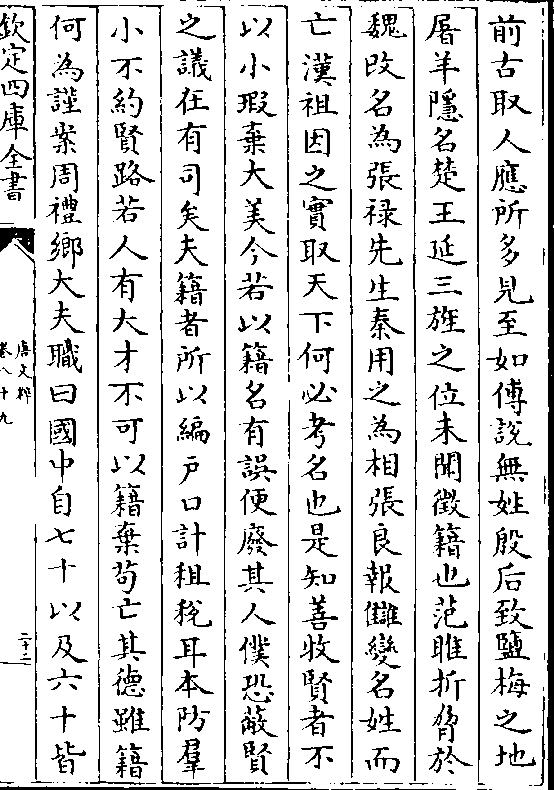 前古取人應所多見至如傅說無姓殷后致鹽梅之地
屠羊隱名楚王延三旌之位未聞徵籍也范雎折脅於
魏改名為張祿先生秦用之為相張良報讎變名姓而
亡漢祖因之實取天下何必考名也是知善收賢者不
以小瑕棄大美今若以籍名有誤便廢其人僕恐蔽賢
之議在有司矣夫籍者所以編戶口計租稅耳本防羣
小不約賢路若人有大才不可以籍棄苟亡其德雖籍
何為謹案周禮鄉大夫職曰國中自七十以及六十皆
欽定四庫全書
唐文粹
卷八十九
二十二